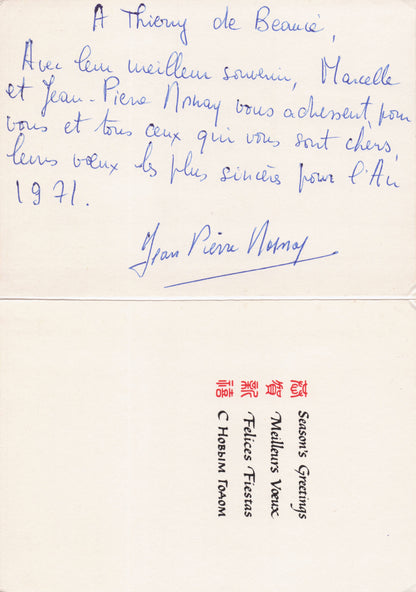 A Thierry de Beaucé,
Avec leur meilleur souvenir, Marcelle
et Jean-Pierre Nornay vous adressent, pour
vous et tous ceux qui vous sont chers,
leurs vœux les plus sincères pour l'An
1971.
Jean Pierre Nornay
恭 Season's Greetings
賀 Meilleurs Vœux
新 Felices Fiestas
禧 С Новым Годом